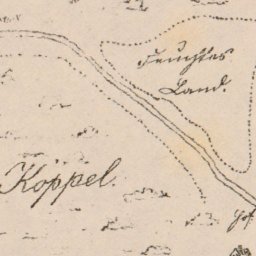 Feuchtes
Land.
Koppel.
Hof